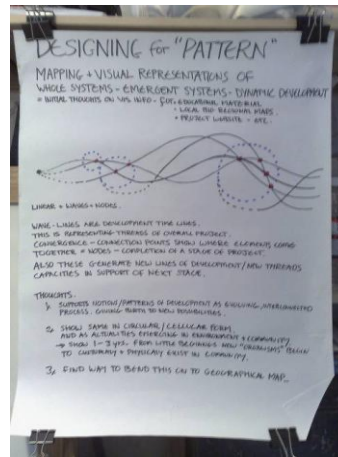 DESIGNING for "PATTERN"
MAPPING + VISUAL REPRESENTATIONS OF
WHOLE SYSTEMS - EMERGENT SYSTEMS - DYNAMIC DEVELOPMENT
= INITIAL THOUGHTS ON VIS INFO - FOR - EDUCATIONAL MATERIAL
- LOCAL AND REGIONAL MAPS
+ PROJECT WEBSITE - ETC.
LINEAR + WAVES + NODES.
WAVE-LINES ARE DEVELOPMENT TIME LINES.
THIS IS REPRESENTING THREADS OF OVERALL PROJECT.
CONVERGENCE - CONNECTION POINTS SHOW WHERE ELEMENTS COME
TOGETHER = NODES - COMPLETION OF A STAGE OF PROJECT.
ALSO THESE GENERATE NEW LINES OF DEVELOPMENT/NEW THREADS
CAPACITIES IN SUPPORT OF NEXT STAGE.
THOUGHTS.
SUPPORTS NOTION/PATTERNS OF DEVELOPMENT AS EVOLVING, INTERCONNECTED
PROCESS. GIVING BIRTH TO NEW POSSIBILITIES.
SHOW SAME IN CIRCULAR/CELLULAR FORM.
AND AS ACTUALITIES EMERGING IN ENVIRONMENT + COMMUNITY
→ SHOW 1-3 yrs. FROM LITTLE BEGINNINGS NEW BEGIN
TO + PHYSICALLY EXIST IN COMMUNITY.
3, FIND WAY TO BEND THIS ON TO GEOGRAPHICAL MAP_